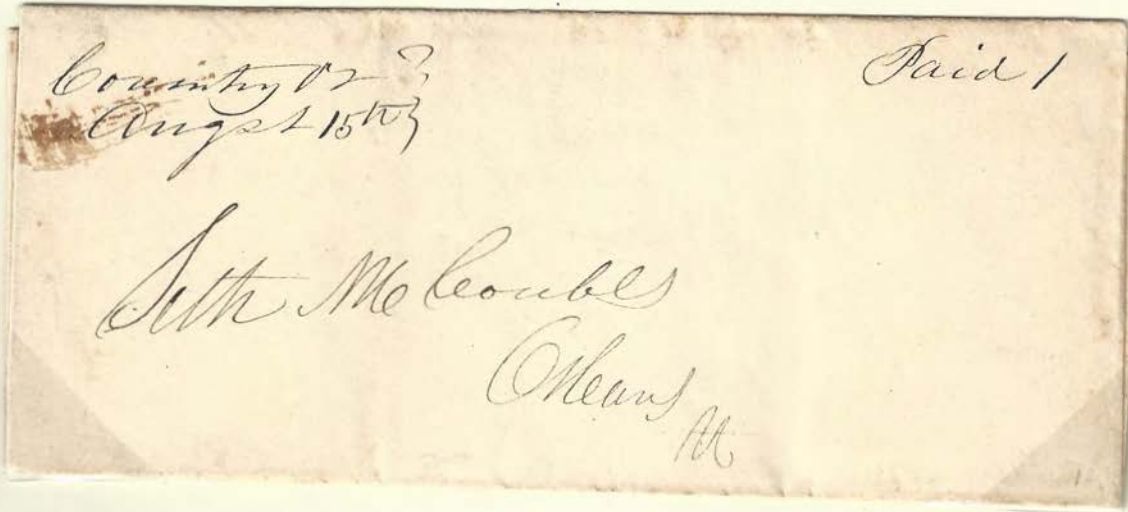 Coventry Vt }
Augst 15th }
Paid 1
Seth McCombes
Orleans
Vt